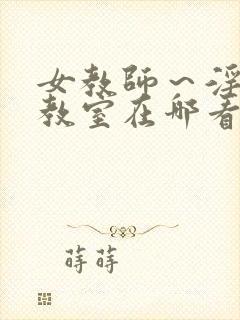 女教師～淫
教室在哪看
蒔蒔